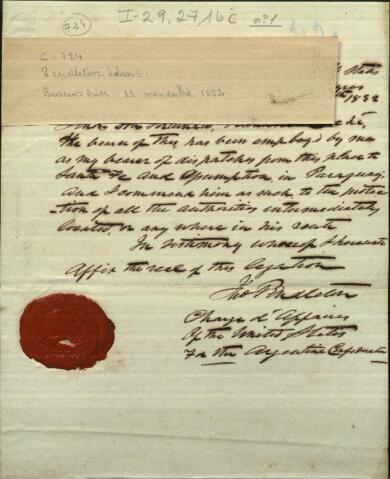 I-29,27,16 c nº1
724
C-724
Pendleton, John S.
Buenos Aires, 11 noviembre 1852
States
1852
the bearer of this, has been employ'd by me
as my bearer of dispatches from this place to
Santa Fe and Assumption in Paraguay.
And I commend him as such to the protec
-tion of all the authorities intermediately
located, or any where in his route
In testimony whereof I hereunto
Affix the seal of this legation
Jno Pendleton
Charge d'Affaires
Of the United States
For the Argentine Confederation